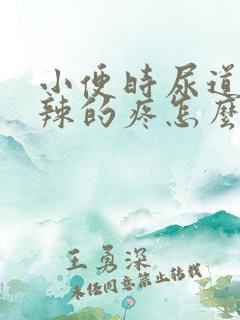 小便时尿道
辣的疼怎么
王勇深
未经同意禁止转载